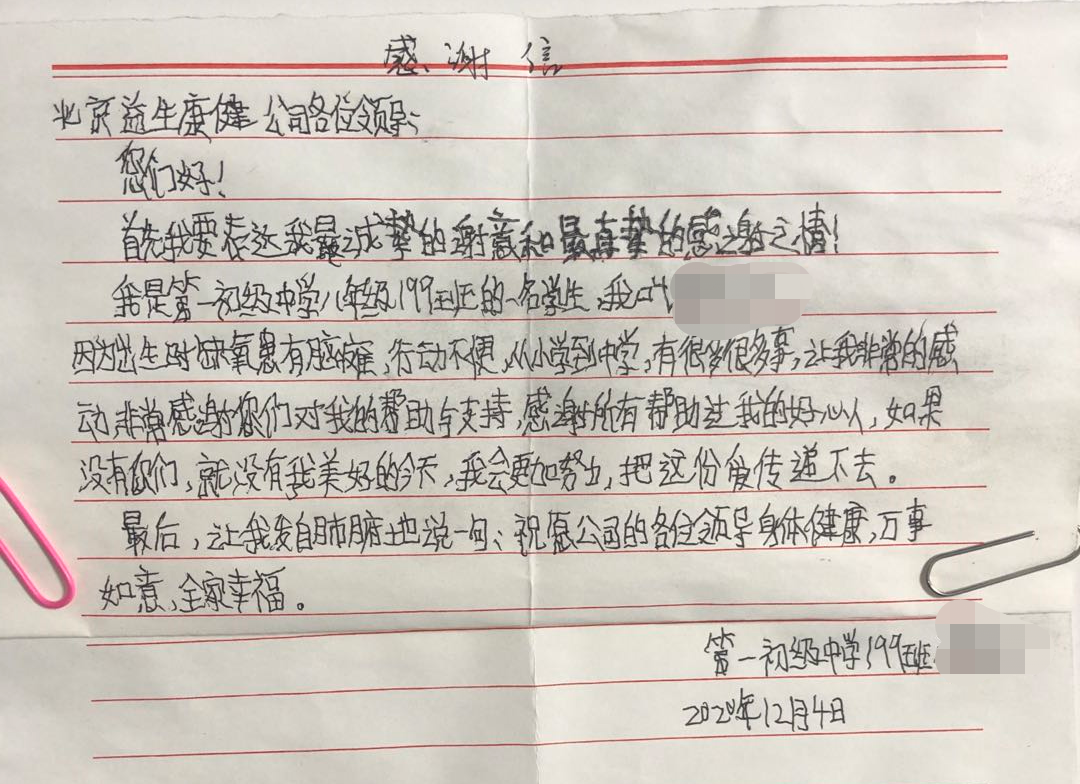 感谢信
北京益生康健公司各位领导:
您们好!
首先我要表达我最诚挚的谢意和最真挚的感谢之情!
我是第一初级中学八年级199班的一名学生,我叫
因为出生时缺氧患有脑瘫,行动不便,从小学到中学,有很多很多事,让我非常的感
动,非常感谢您们对我的帮助与支持,感谢所有帮助过我的好心人,如果
没有你们,就没有我美好的今天,我会更加努力,把这份爱传递下去。
最后,让我发自肺腑地说一句:祝愿公司的各位领导身体健康,万事
如意,全家幸福。
第一初级中学199班
2020年12月4日